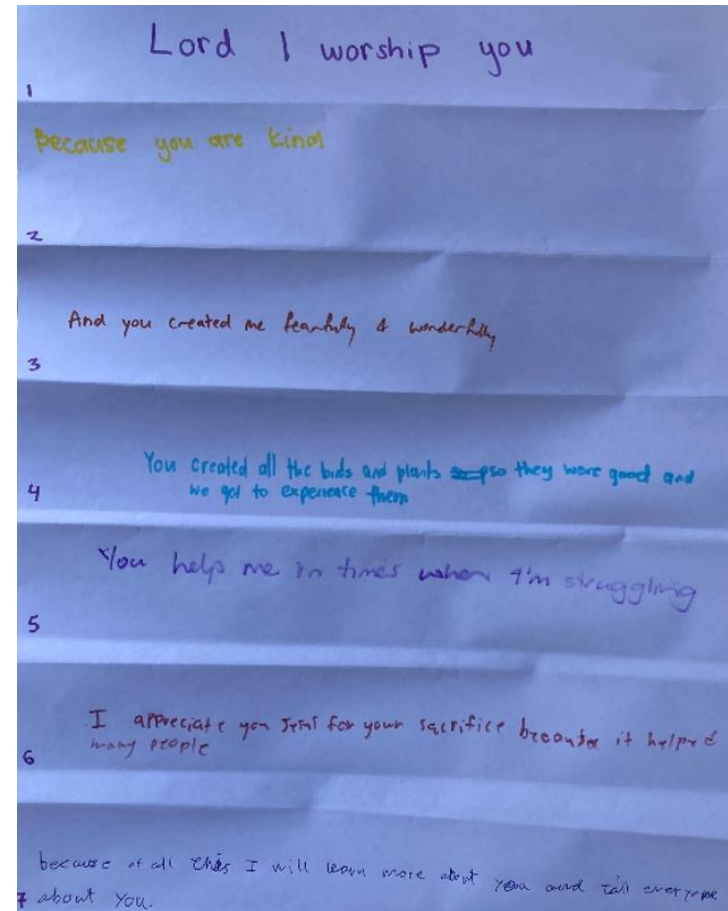 Lord I worship you
1
Because you are kind
2
And you created me fearfully & wonderfully
3
You created all the birds and plants so they were good and
4 we got to experience them
You help me in times when I'm struggling
5
I appreciate you for your sacrifice because it helped
many people
6
because of all this I will learn more about you and tell everyone
7 about you.